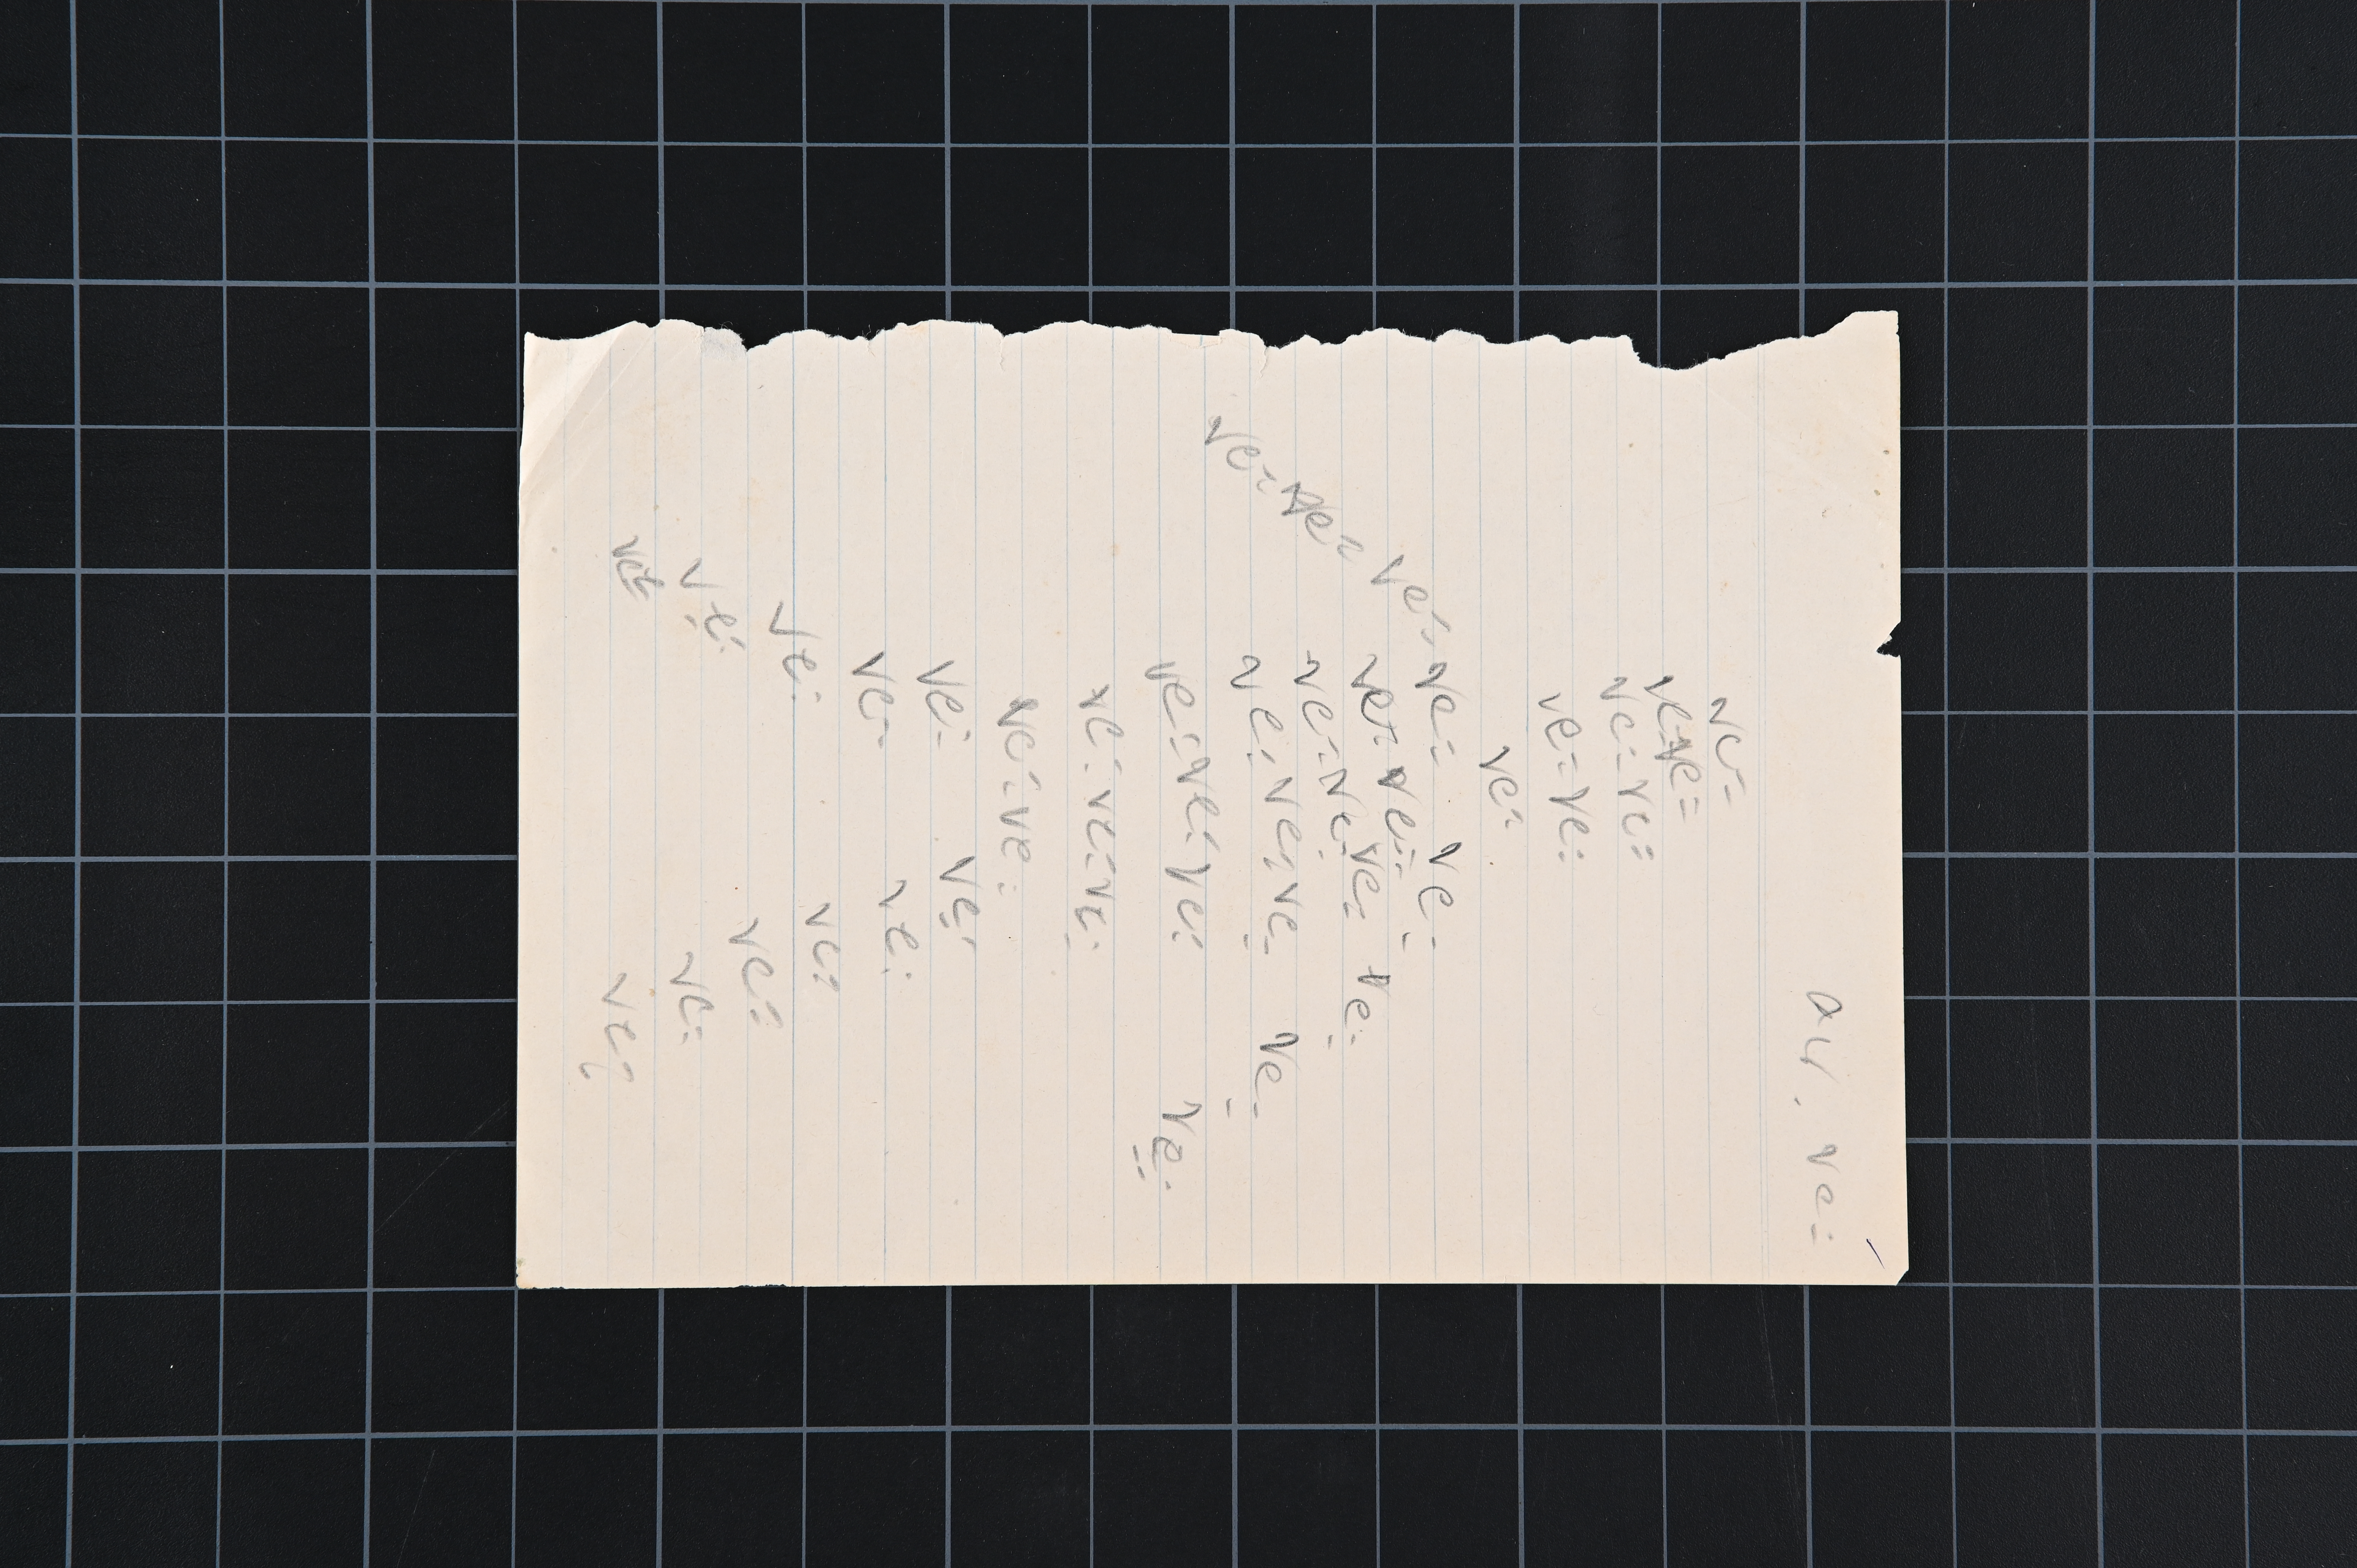 av. ve=
ve=
ve=ve=
ve=ve=
ve=ve=
ve=
ve= ve= ve=
ve= ve= ve=
ve= ve= ve= ve=
ve= ve= ve= ve= ve=
ve= ve= ve= ve=
ve= ve= ve=
ve= ve=
ve= ve=
ve= ve=
ve= ve=
ve=
ve= ve=
ve= ve=